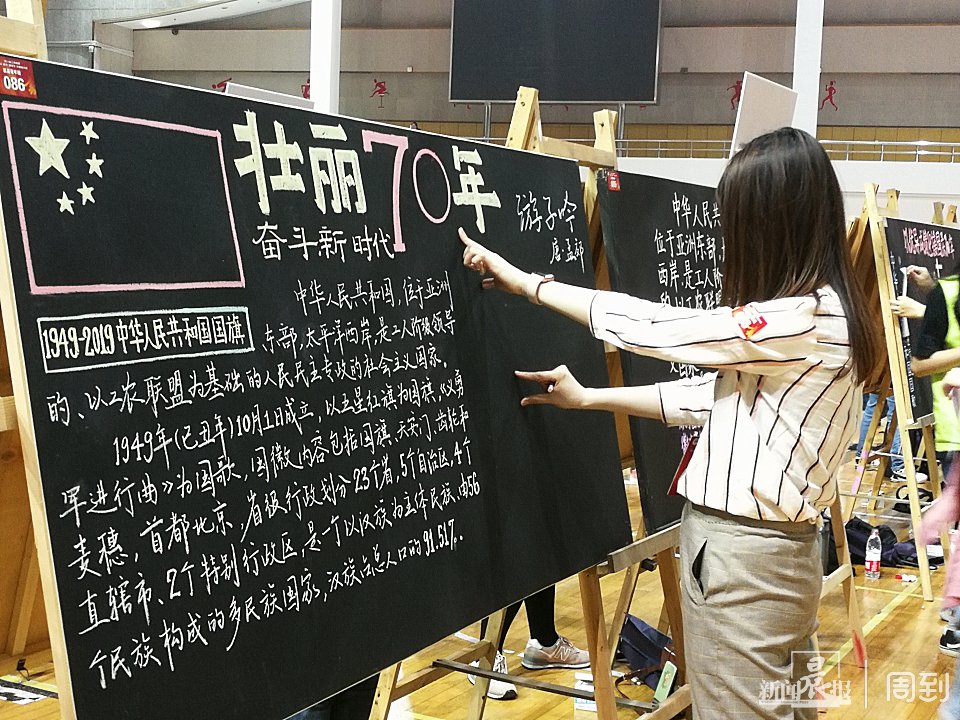 086
壮丽70年
奋斗新时代
游子吟
唐·孟郊
1949-2019中华人民共和国国旗
中华人民共和国,位于亚洲
东部,太平洋西岸,是工人阶级领导
的、以工农联盟为基础的人民民主专政的社会主义国家。
1949年(己丑年)10月1日成立,以五星红旗为国旗,《义勇
军进行曲》为国歌,国徽内容包括国旗、天安门、齿轮和
麦穗,首都北京,省级行政划分23个省,5个自治区,4个
直辖市、2个特别行政区,是一个以汉族为主体民族、由56
个民族构成的多民族国家,汉族占总人口的91.51%。
中华人民
位于亚洲东部,
西岸,是工人阶
新闻晨报
周到